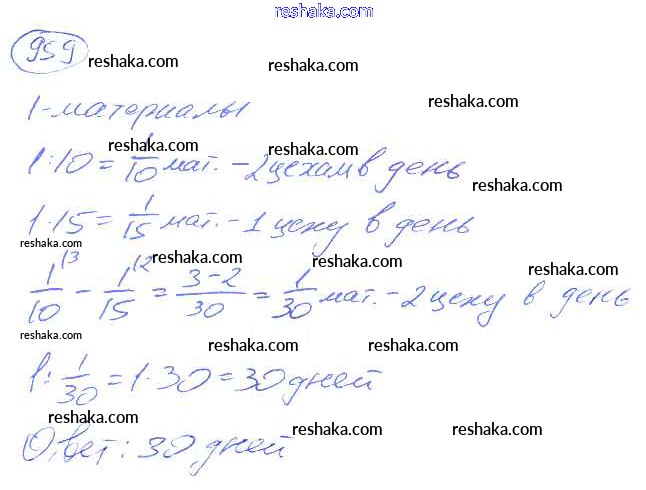 reshaka.com
959 reshaka.com reshaka.com
1-материалы reshaka.com
reshaka.com reshaka.com
1:10 = 1/10 мат. - 2 цехам в день
reshaka.com
1:15 = 1/15 мат. - 1 цеху в день
reshaka.com reshaka.com reshaka.com reshaka.com
1/10 \3 - 1/15 \2 = 3-2/30 = 1/30 мат. - 2 цеху в день
reshaka.com reshaka.com reshaka.com
1: 1/30 = 1·30 = 30 дней
reshaka.com reshaka.com reshaka.com
Ответ: 30 дней